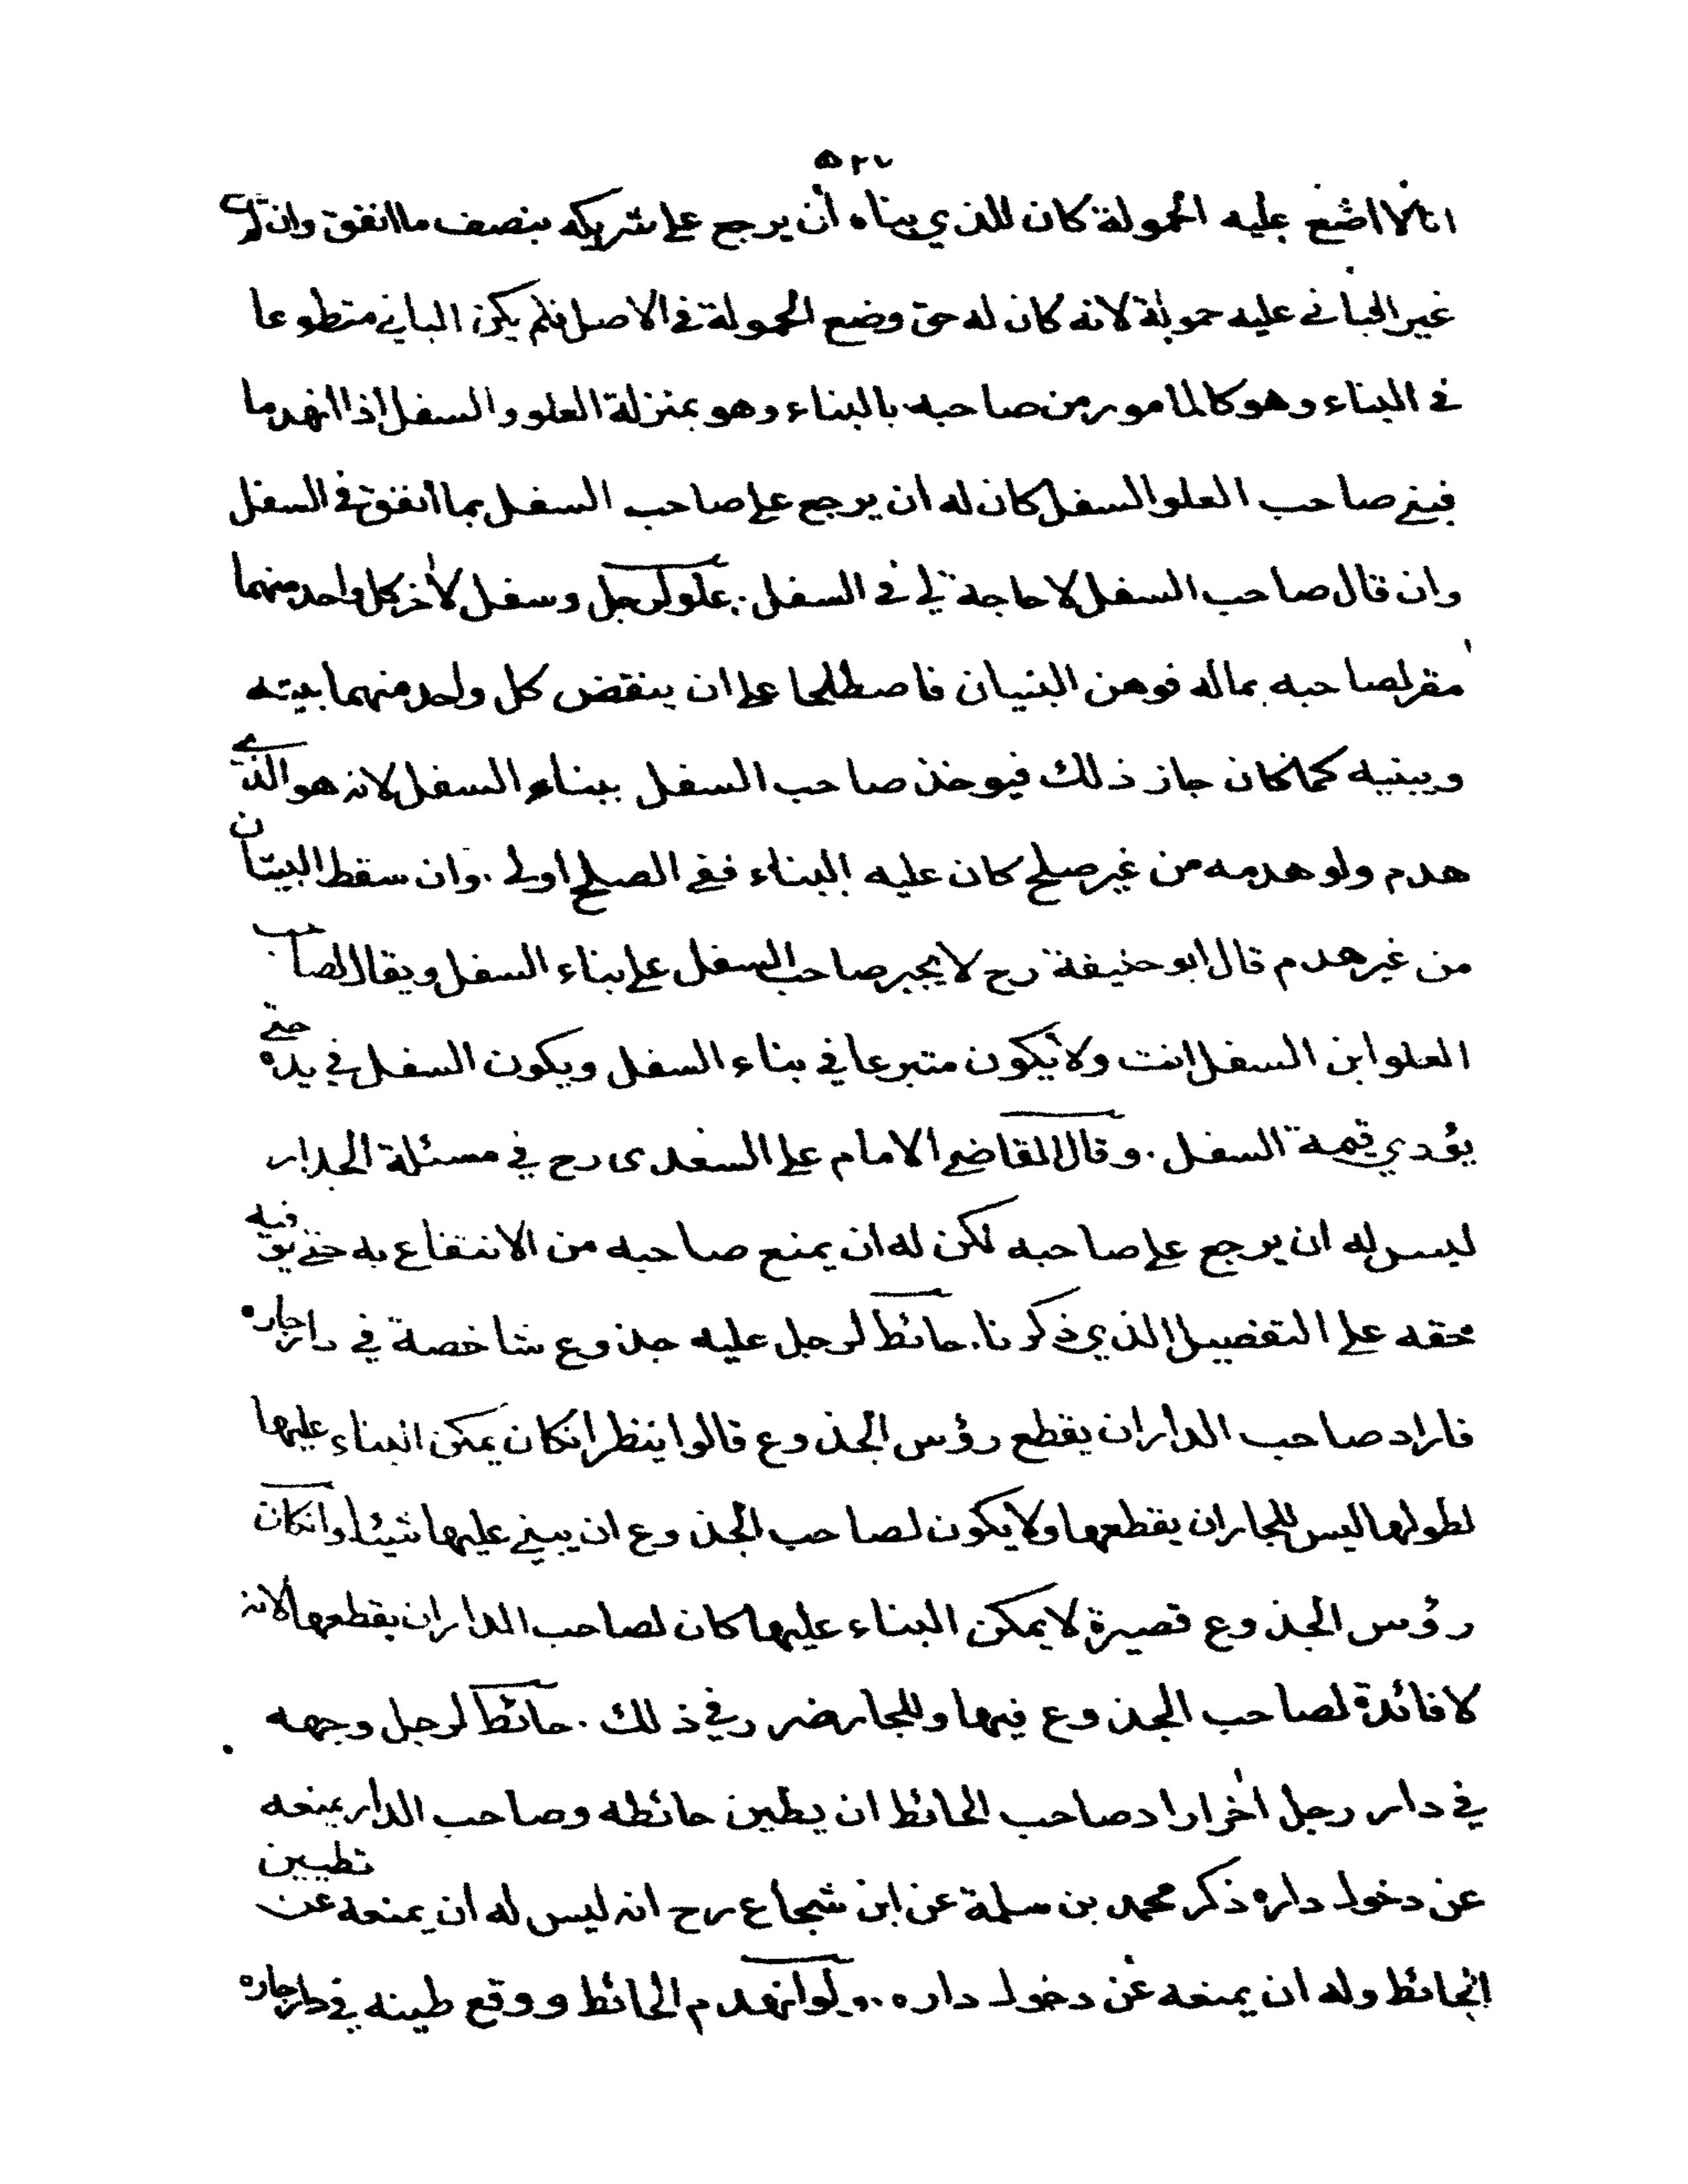 ٥٢٧
انا لا اضع عليه الحمولة كان للذي بناه أن يرجع على شريكه بنصف ما انفق وان لم
غير البانى عليه حمولة لانه كان له حق وضع الحمولة في الاصل فلم يكن الباني متطوعا
في البناء وهو كالمامور من صاحبه بالبناء وهو بمنزلة العلو والسفل اذا انهدما
فبنى صاحب العلو السفل كان له ان يرجع على صاحب السفل بما انفق في السفل
وان قال صاحب السفل لا حاجة لي في السفل . علو لرجل وسفل لاخر كل واحد منهما
مقر لصاحبه بماله فوهن البنيان فاصطلحا على ان ينقض كل واحد منهما بيته
ويبنيه كما كان جاز ذلك فيوخذ صاحب السفل ببناء السفل لانه هو الذي
هدم ولو هدمه من غير صلح كان عليه البناء ففي الصلح اولى . وان سقط البيتان
من غير هدم قال ابو حنيفة رح لا يجبر صاحب السفل على بناء السفل ويقال لصاحب
العلو ابن السفل انت ولا يكون متبرعا في بناء السفل ويكون السفل في يده حتى
يؤدي قيمة السفل . وقال القاضي الامام علي السغدى رح في مسئلة الجدار
ليس له ان يرجع على صاحبه لكن له ان يمنع صاحبه من الانتفاع به حتى يوفيه
حقه على التفصيل الذي ذكرنا . حائط لرجل عليه جذوع شاخصة في دار جاره
فاراد صاحب الدار ان يقطع رؤس الجذوع قالوا ينظر انكان يمكن البناء عليها
لطولها ليس للجار ان يقطعها ولا يكون لصاحب الجذوع ان يبني عليها شيئا وانكان
رؤس الجذوع قصيرة لا يمكن البناء عليها كان لصاحب الدار ان يقطعها لانه
لا فائدة لصاحب الجذوع فيها وللجار ضرر في ذلك . حائط لرجل وجهه
في دار رجل اخر اراد صاحب الحائط ان يطين حائطه وصاحب الدار يمنعه
عن دخول داره ذكر محمد بن سلمة عن ابن شجاع رح انه ليس له ان يمنعه عن تطيين
الحائط وله ان يمنعه عن دخول داره . ولو انهدم الحائط ووقع طينه في دار جاره